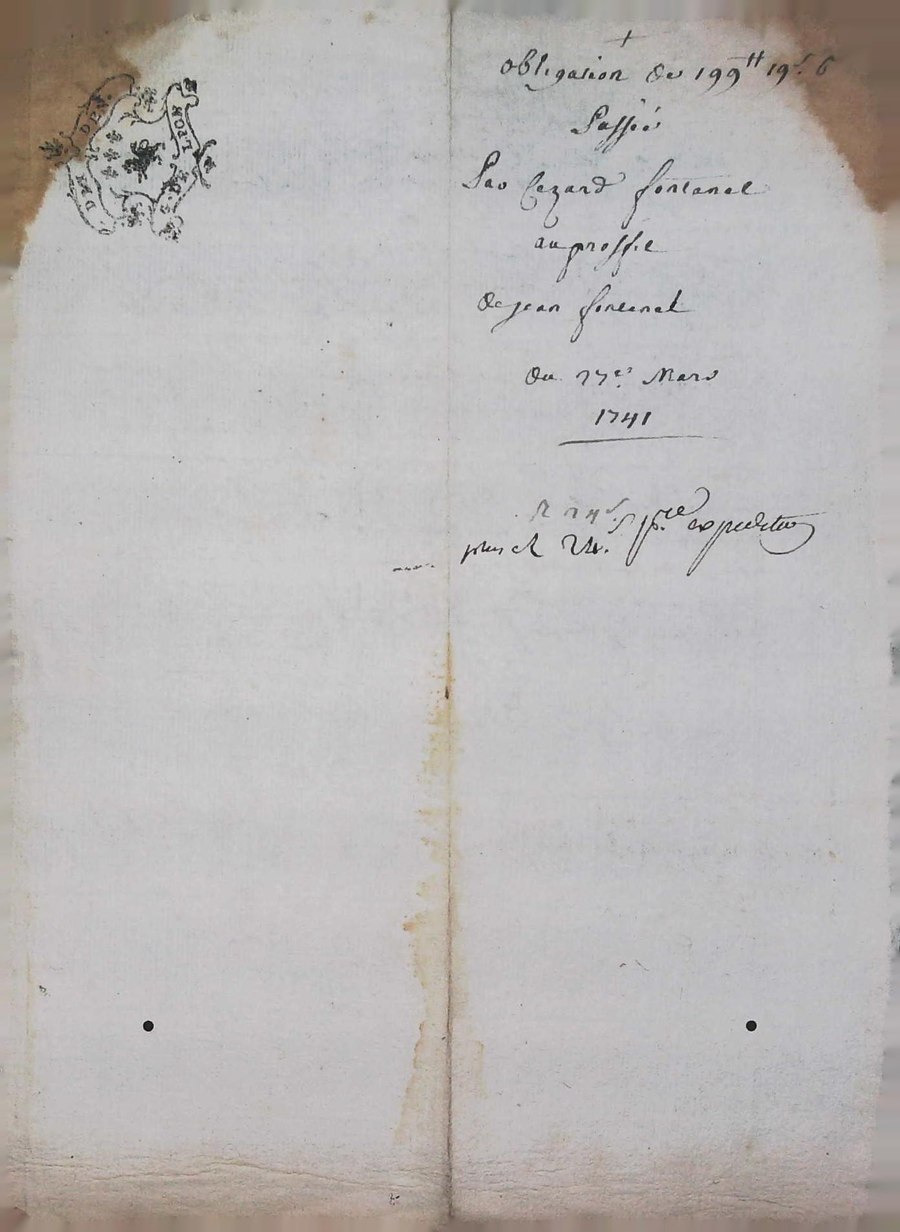 +
obligation de 199tt 19s. 6
Passée
Par Cezard fontanel
au proffit
de jean fontanel
du 27e. Mars
1741
pr. expedition
24.
DEN. LYON